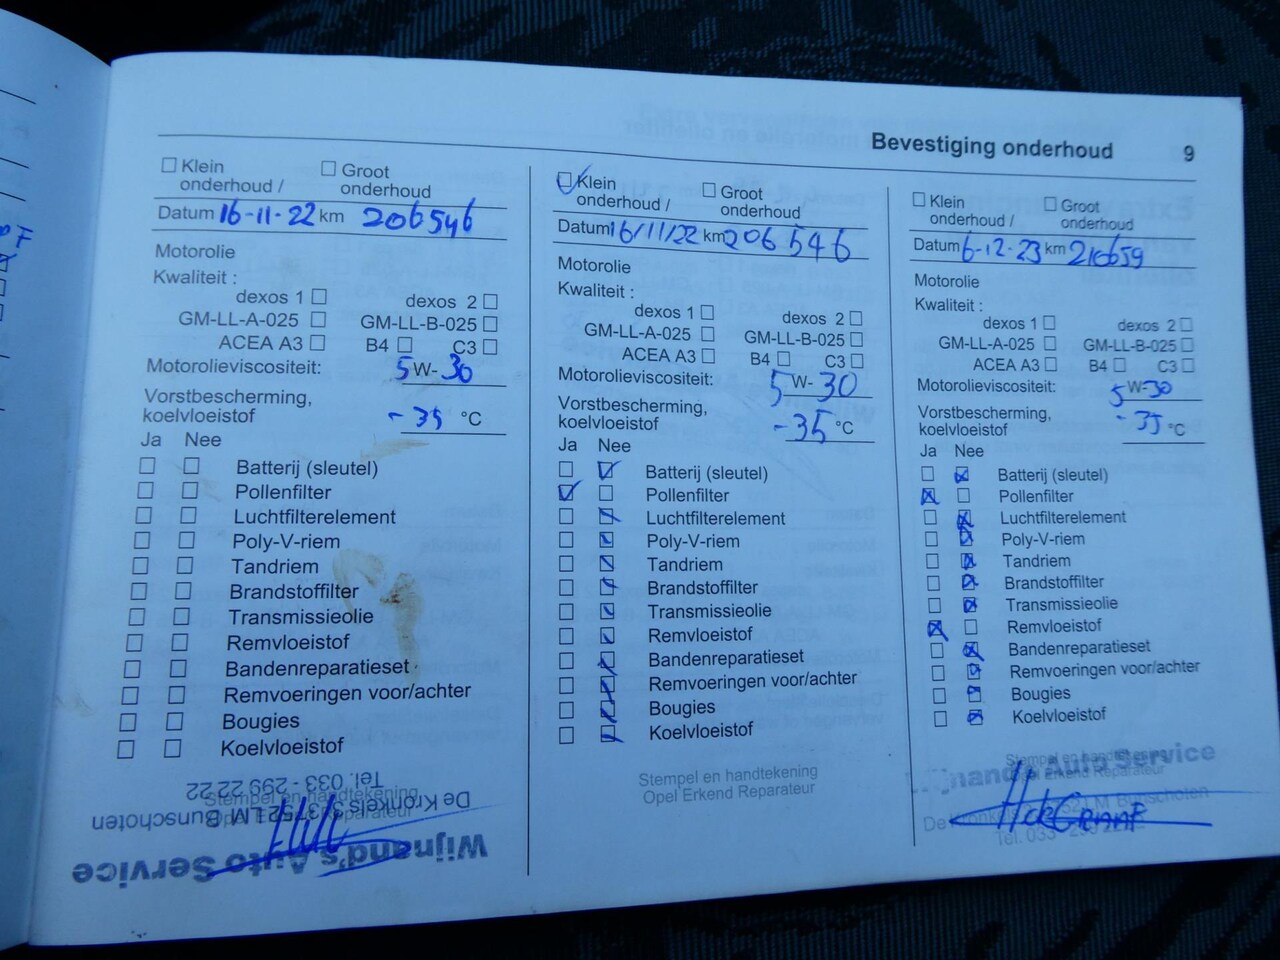 Bevestiging onderhoud 9
Klein onderhoud / Groot onderhoud
Datum 16-11-22 km 206546
Motorolie
Kwaliteit :
dexos 1 dexos 2
GM-LL-A-025 GM-LL-B-025
ACEA A3 B4 C3
Motorolieviscositeit: 5 W- 30
Vorstbescherming,
koelvloeistof -35 °C
Ja Nee
Batterij (sleutel)
Pollenfilter
Luchtfilterelement
Poly-V-riem
Tandriem
Brandstoffilter
Transmissieolie
Remvloeistof
Bandenreparatieset
Remvoeringen voor/achter
Bougies
Koelvloeistof
Stempel en handtekening
Opel Erkend Reparateur
Wijnand's Auto Service
De Kronkels 3752 LM Bunschoten
Tel. 033 - 299 22 22
Klein onderhoud / Groot onderhoud
Datum 16/11/22 km 206546
Motorolie
Kwaliteit :
dexos 1 dexos 2
GM-LL-A-025 GM-LL-B-025
ACEA A3 B4 C3
Motorolieviscositeit: 5 W- 30
Vorstbescherming,
koelvloeistof -35 °C
Ja Nee
Batterij (sleutel)
Pollenfilter
Luchtfilterelement
Poly-V-riem
Tandriem
Brandstoffilter
Transmissieolie
Remvloeistof
Bandenreparatieset
Remvoeringen voor/achter
Bougies
Koelvloeistof
Stempel en handtekening
Opel Erkend Reparateur
Klein onderhoud / Groot onderhoud
Datum 6-12-23 km 210659
Motorolie
Kwaliteit :
dexos 1 dexos 2
GM-LL-A-025 GM-LL-B-025
ACEA A3 B4 C3
Motorolieviscositeit: 5 W-30
Vorstbescherming,
koelvloeistof -35 °C
Ja Nee
Batterij (sleutel)
Pollenfilter
Luchtfilterelement
Poly-V-riem
Tandriem
Brandstoffilter
Transmissieolie
Remvloeistof
Bandenreparatieset
Remvoeringen voor/achter
Bougies
Koelvloeistof
Stempel en handtekening
Opel Erkend Reparateur
Auto Service
Bunschoten
Tel. 033